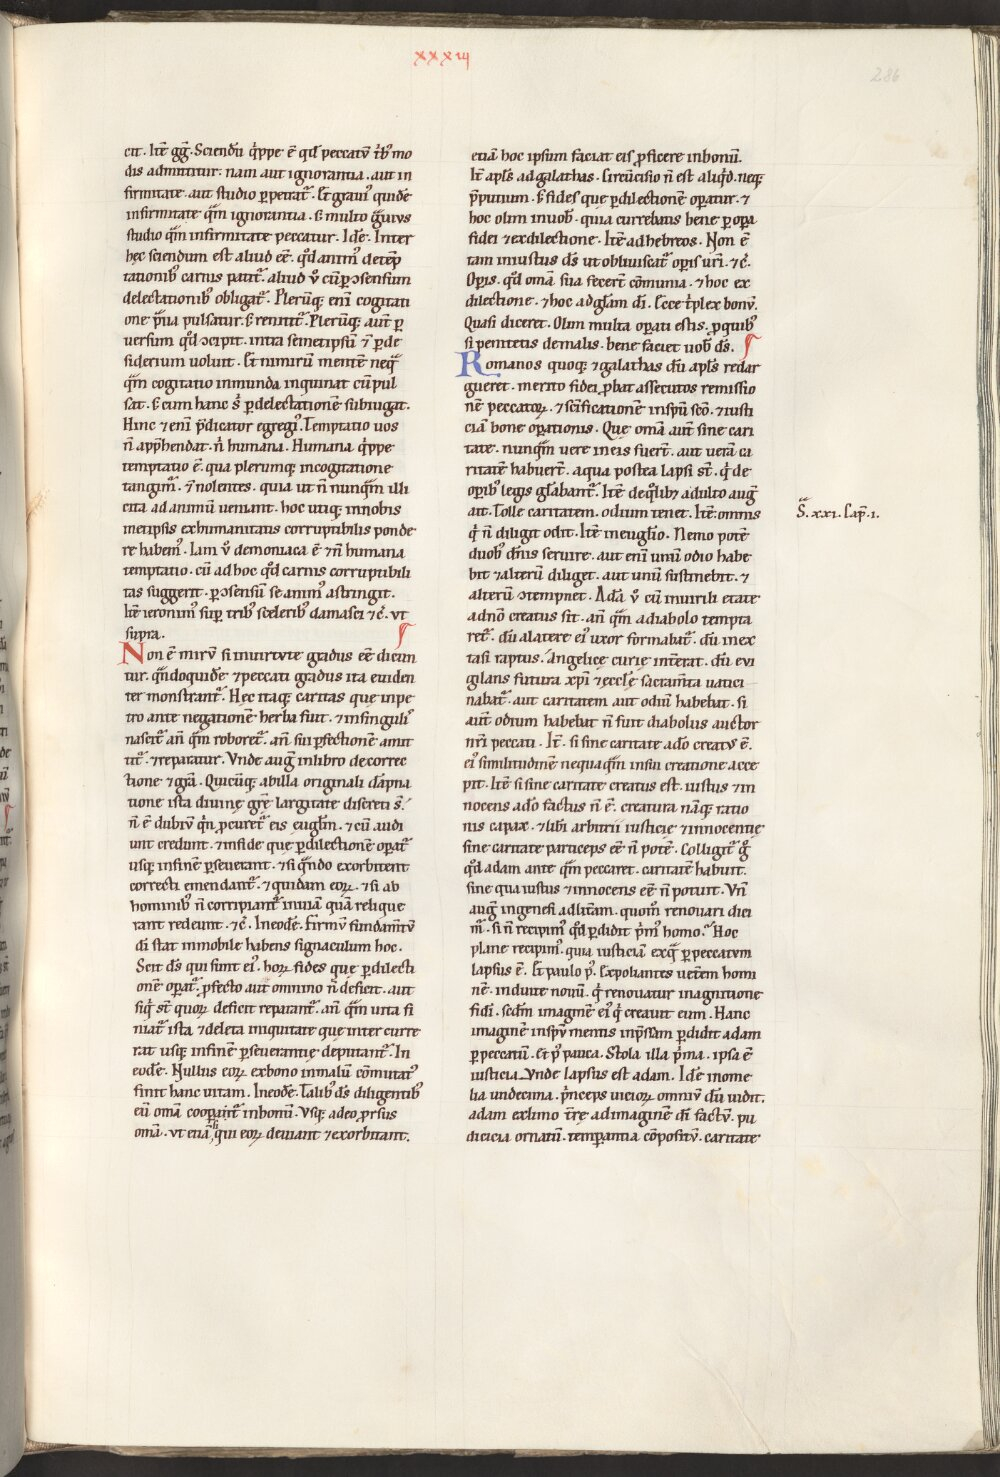 xxxiij
286
cit. Itẽ gg̃. Sciendũ q̇ppe ẽ qđ peccatũ tͥbꝰ mo
dis admittitur. nam aut ignorantia. aut in
firmitate. aut studio ꝑpetratᷣ. Et grauiꝰ quidẽ
infirmitate qͣm ignorantia. s̃ multo gͣuius
studio qͣm infirmitate peccatur. Idẽ. Inter
hęc sciendum est aliud eẽ. qđ animꝰ de tẽp
tationibꝰ carnis patitᷣ. aliud ṽ cũ ꝑ ↄsensum
delectationibꝰ obligatᷣ. Plerũq; enĩ cogitati
one pͣua pulsatur. s̃ renitit᷑. Plerũq; aut̃ ꝑ
uersum qđ ↄcipit. intra semetipsũ ⁊ ꝑ de
siderium uoluit. Et nimirũ mentẽ neqͣ
qͣm cogitatio inmunda inquinat cũ pul
sat. s̃ cum hanc s̉ ꝑ delectationẽ subiugat.
Hinc ⁊ enĩ p̃dicator egregiꝰ. Temptatio uos
ñ app̃hendat. ñ humana. Humana q̇ppe
temptatio ẽ. qua plerumq; in cogitatione
tangimᷣ. ⁊ nolentes. quia ut ñ nunqͣm illi
cita ad animũ ueniant. hoc utiq; in nobis
metipsis ex humanitatis corruptibilis ponde
re habemꝰ. Iam ṽ demoniaca ẽ ⁊ ñ humana
temptatio. cũ ad hoc qđ carnis corruptibili
tas suggerit. ꝑ ↄsensũ se animꝰ astringit.
Itẽ ieronimꝰ sup̱ tribꝰ sceleribꝰ damasci ⁊ c̃. vt
supra. ¶
Non ẽ mirũ si in uirtute gradus eẽ dicun
tur. qn̄doquidẽ ⁊ peccati gradus ita euiden
ter monstrantᷣ. Hęc itaq; caritas que in pe
tro ante negationẽ herba fuit. ⁊ in singulis
nascitᷣ añ qͣm roboretᷣ. añ sui ꝑfectionẽ amit
titᷣ. ⁊ reparatur. Vnde aug̃ in libro de correc
tione ⁊ grã. Quicũq; ab illa originali dãpna
tione ista diuinę grę̃ largitate discreti s̃.
ñ ẽ dubiũ qͥn ꝓcuretᷣ eis eugl̃m. ⁊ cũ audi
unt credunt. ⁊ in fide que ꝑ dilectionẽ opatᷣ
usq; in finẽ ꝑseuerant. ⁊ si qn̄do exorbitent
correcti emendantᷣ. ⁊ quidam eoꝝ. ⁊ si ab
hominibꝰ ñ corripiantᷣ in uiã quã relique
rant redeunt. ⁊ c̃. In eodẽ. Firmũ fundam̃tũ
dĩ stat immobile habens signaculum hoc.
Scit dš qui sunt eiꝰ. hoꝝ fides que ꝑ dilecti
onẽ opatᷣ. ꝓfecto aut̃ omnino ñ deficit. aut
siq̇ st̃ quoꝝ deficit reparantᷣ. añ qͣm uita fi
niatᷣ ista ⁊ deleta iniquitate que inter curre
rat usq; in finẽ ꝑseuerantię deputantᷣ. In
eodẽ. Nullus eoꝝ ex bono in malũ cõmutatꝰ
finit hanc uitam. In eodẽ. Talibꝰ dš diligentibꝰ
eũ om̃a coopantᷣ in bonũ. Vsq; adeo ꝓrsus
om̃a. vt etiã qui eoꝝ deuiant ⁊ exorbitant.
etiã hoc ipsum faciat eis ꝓficere in bonũ.
It̃ apłs ad galathas. Circũcisio ñ est aliq̇d. neq;
p̃putium. s̃ fides que ꝑ dilectionẽ opatur. ⁊
hoc olim in uob̃. quia currebatis bene ꝑ opa
fidei ⁊ ex dilectione. Itẽ ad hebreos. Non ẽ
tam iniustus dš ut obliuiscatᷣ opis urĩ. ⁊ c̃.
Opis. qđ om̃a sua fecert̃ cõmunia. ⁊ hoc ex
dilectione. ⁊ hoc ad gl̃am dĩ. Ecce tͥplex bonũ.
Quasi diceret. Olim multa opati estis. ꝓ quibꝰ
si penitetis de malis. bene faciet uob̃ dš. ¶
Romanos quoq; ⁊ galathas dũ apłs redar
gueret. merito fidei ꝓbat assecutos remissio
nẽ peccatoꝝ. ⁊ sc̃ificationẽ in sp̃u sc̃o. ⁊ iusti
ciã bone opationis. Que om̃a aut̃ sine cari
tate. nunqͣm uere in eis fuert̃. aut uerã ca
ritatẽ habuert̃. a qua postea lapsi st̃. q̇ de
opibꝰ legis gl̃abantᷣ. Itẽ de q̇libꝫ adulto aug̃
ait. Tolle caritatem. odium tenet. Itẽ. omnis
q̇ ñ diligit odit. Itẽ in eugl̃io. Nemo potẽ
duobꝰ dñis seruire. aut enĩ unũ odio habe
bit ⁊ alterũ diliget. aut unũ sustinebit. ⁊
alterũ ↄtempnet. Adã ṽ cũ in uirili etate
a dño creatus sit. añ qͣm a diabolo tempta
retᷣ. dũ a latere eiꝰ uxor formabatᷣ. dũ in ex
tasi raptus. Angelicę curię int̃erat. dũ eui
gilans futura xp̃i ⁊ eccl̃ę sacram̃ta uatici
nabatᷣ. aut caritatem aut odiũ habebat. si
aut̃ odium habebat ñ fuit diabolus auctor
nr̃i peccati. It̃. si sine caritate a d̃o creatꝰ ẽ.
eiꝰ similitudinẽ nequaqͣm in sui creatione acce
pit. Itẽ si sine caritate creatus est. iustus ⁊ in
nocens a d̃o factus ñ ẽ. creatura nãq; ratio
nis capax. ⁊ libĩ arbitrii iusticię ⁊ innocentię
sine caritate particeps eẽ ñ potẽ. Colligitᷣ g̊
qđ adam ante qͣm peccaret. caritatẽ habuit.
sine qua iustus ⁊ innocens eẽ ñ potuit. Vñ
aug̃ in genesi ad lit̃am. quom̊ renouari dici
mᷣ. si ñ recipimꝰ qđ ꝑdidit pͥmꝰ homo. Hoc
plane recipimꝰ quia iusticiã ex qͣ ꝑ peccatum
lapsus ẽ. Et paulo pꝰ. Expoliantes ueterẽ homi
nẽ. induite nouũ. q̇ renouatur in agnitione
fidĩ. sc̃dm imaginẽ eiꝰ q̇ creauit eum. Hanc
imaginẽ in sp̃u mentis inp̃ssam ꝑdidit adam
ꝑ peccatũ. Et pꝰ pauca. Stola illa pͥma. ipsa ẽ
iusticia. Vnde lapsus est adam. Idẽ in ome
lia undecima. pͥnceps uicioꝝ omniũ dũ uidit.
adam ex limo tr̃ę ad imaginẽ dĩ factũ. pu
dicicia ornatũ. temꝑantia cõpositũ. caritate
S̃. xxi. Cap̃. i.